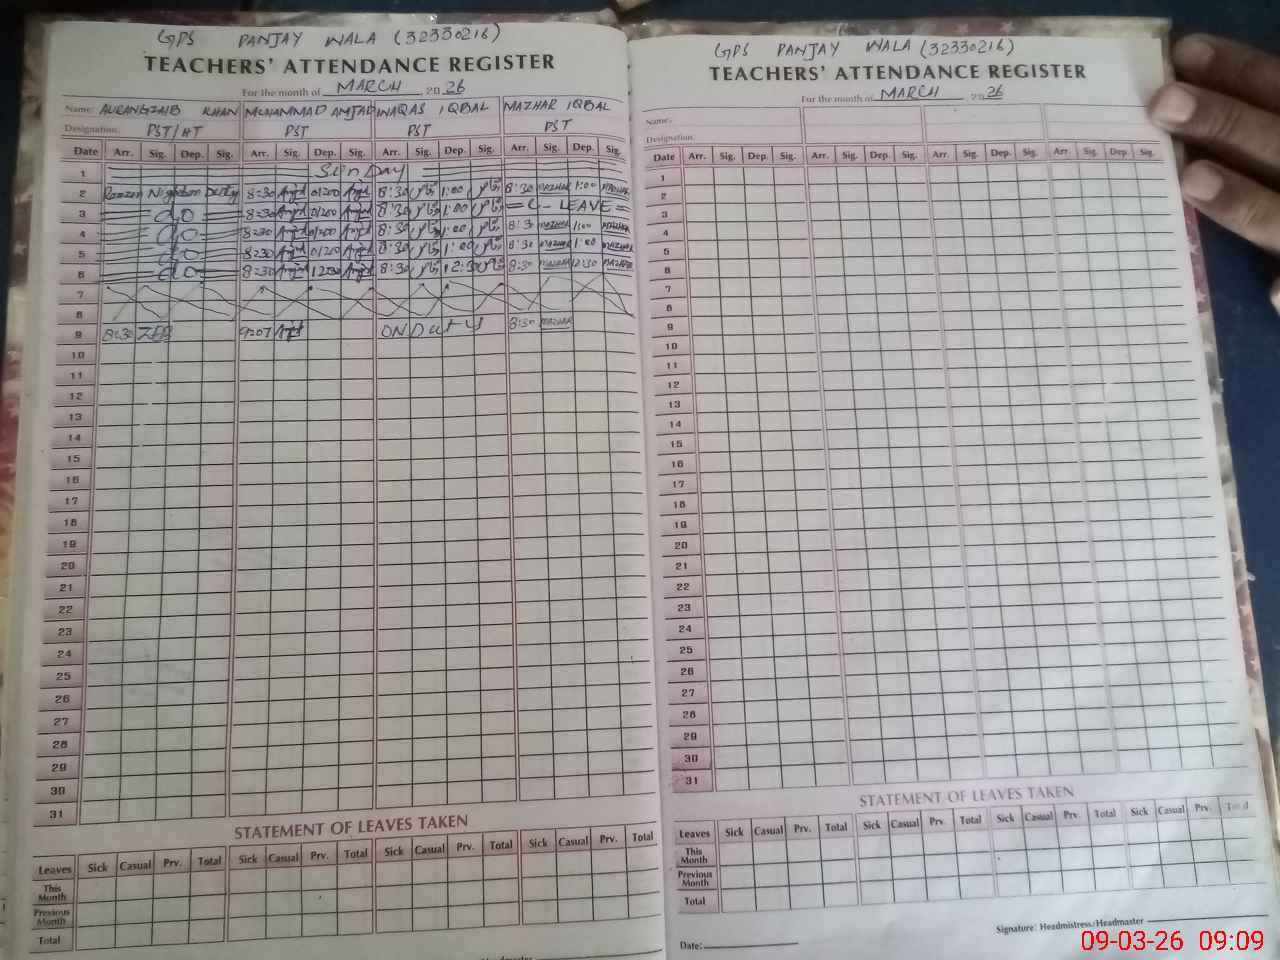 GPS PANJAY WALA (32330216)
TEACHERS' ATTENDANCE REGISTER
For the month of MARCH 2026
Name: AURANGZAIB KHAN MUHAMMAD AMJAD WAQAS IQBAL MAZHAR IQBAL
Designation: PST/HT PST PST PST
Date Arr. Sig. Dep. Sig. Arr. Sig. Dep. Sig. Arr. Sig. Dep. Sig. Arr. Sig. Dep. Sig.
1 Sunday
2 Ramzan Nigahban Duty 8:30 Amjd 01:00 Amjd 8:30 1:00 8:30 MAZHAR 1:00 MAZHAR
3 do 8:30 Amjd 01:00 Amjd 8:30 1:00 C-LEAVE
4 do 8:30 Amjd 01:00 Amjd 8:30 1:00 8:3 MAZHAR 1:00 MAZHAR
5 do 8:30 Amjd 01:00 Amjd 8:30 1:00 8:30 MAZHAR 1:00 MAZHAR
6 do 8:30 Amjd 12:30 Amjd 8:30 12:30 8:30 MAZHAR 12:30 MAZHAR
7
8
9 8:30 ZEB 9:07 Amjd ON Duty 8:30 MAZHAR
10
11
12
13
14
15
16
17
18
19
20
21
22
23
24
25
26
27
28
29
30
31
STATEMENT OF LEAVES TAKEN
Leaves Sick Casual Prv. Total Sick Casual Prv. Total Sick Casual Prv. Total Sick Casual Prv. Total
This Month
Previous Month
Total
GPS PANJAY WALA (32330216)
TEACHERS' ATTENDANCE REGISTER
For the month of MARCH 2026
Name:
Designation:
Date Arr. Sig. Dep. Sig. Arr. Sig. Dep. Sig. Arr. Sig. Dep. Sig. Arr. Sig. Dep. Sig.
1
2
3
4
5
6
7
8
9
10
11
12
13
14
15
16
17
18
19
20
21
22
23
24
25
26
27
28
29
30
31
STATEMENT OF LEAVES TAKEN
Leaves Sick Casual Prv. Total Sick Casual Prv. Total Sick Casual Prv. Total Sick Casual Prv. Total
This Month
Previous Month
Total
Signature: Headmistress/Headmaster
Date:
09-03-26 09:09